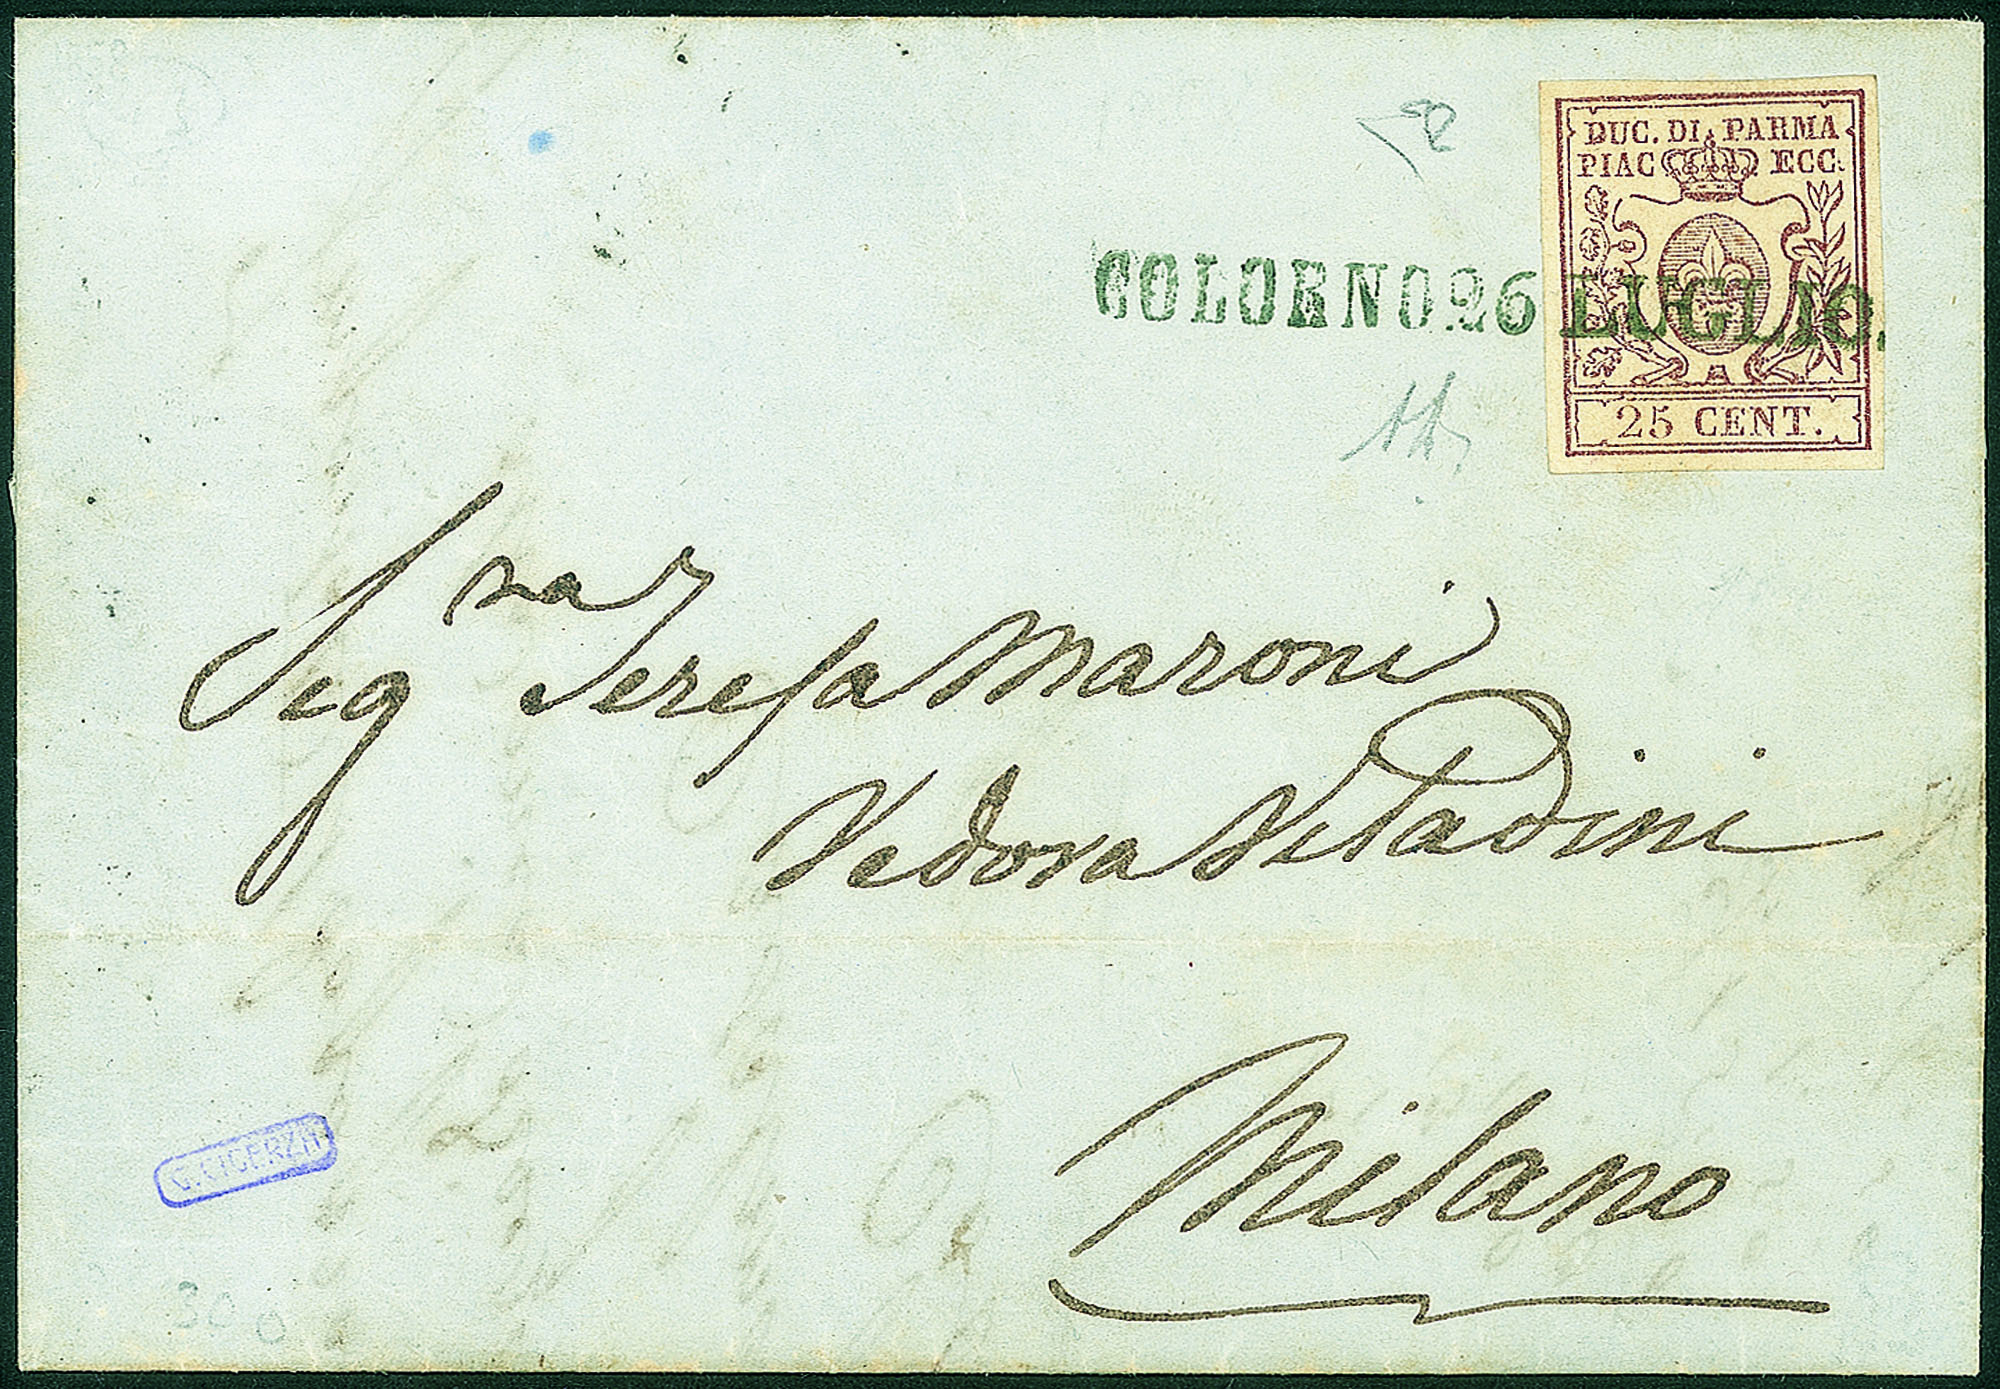 DUC. DI PARMA
PIAC ECC.
COLORNO.26 LUGLIO.
25 CENT.
Sig.ra Teresa Maroni
Vedova Vitadini
Milano
30 0